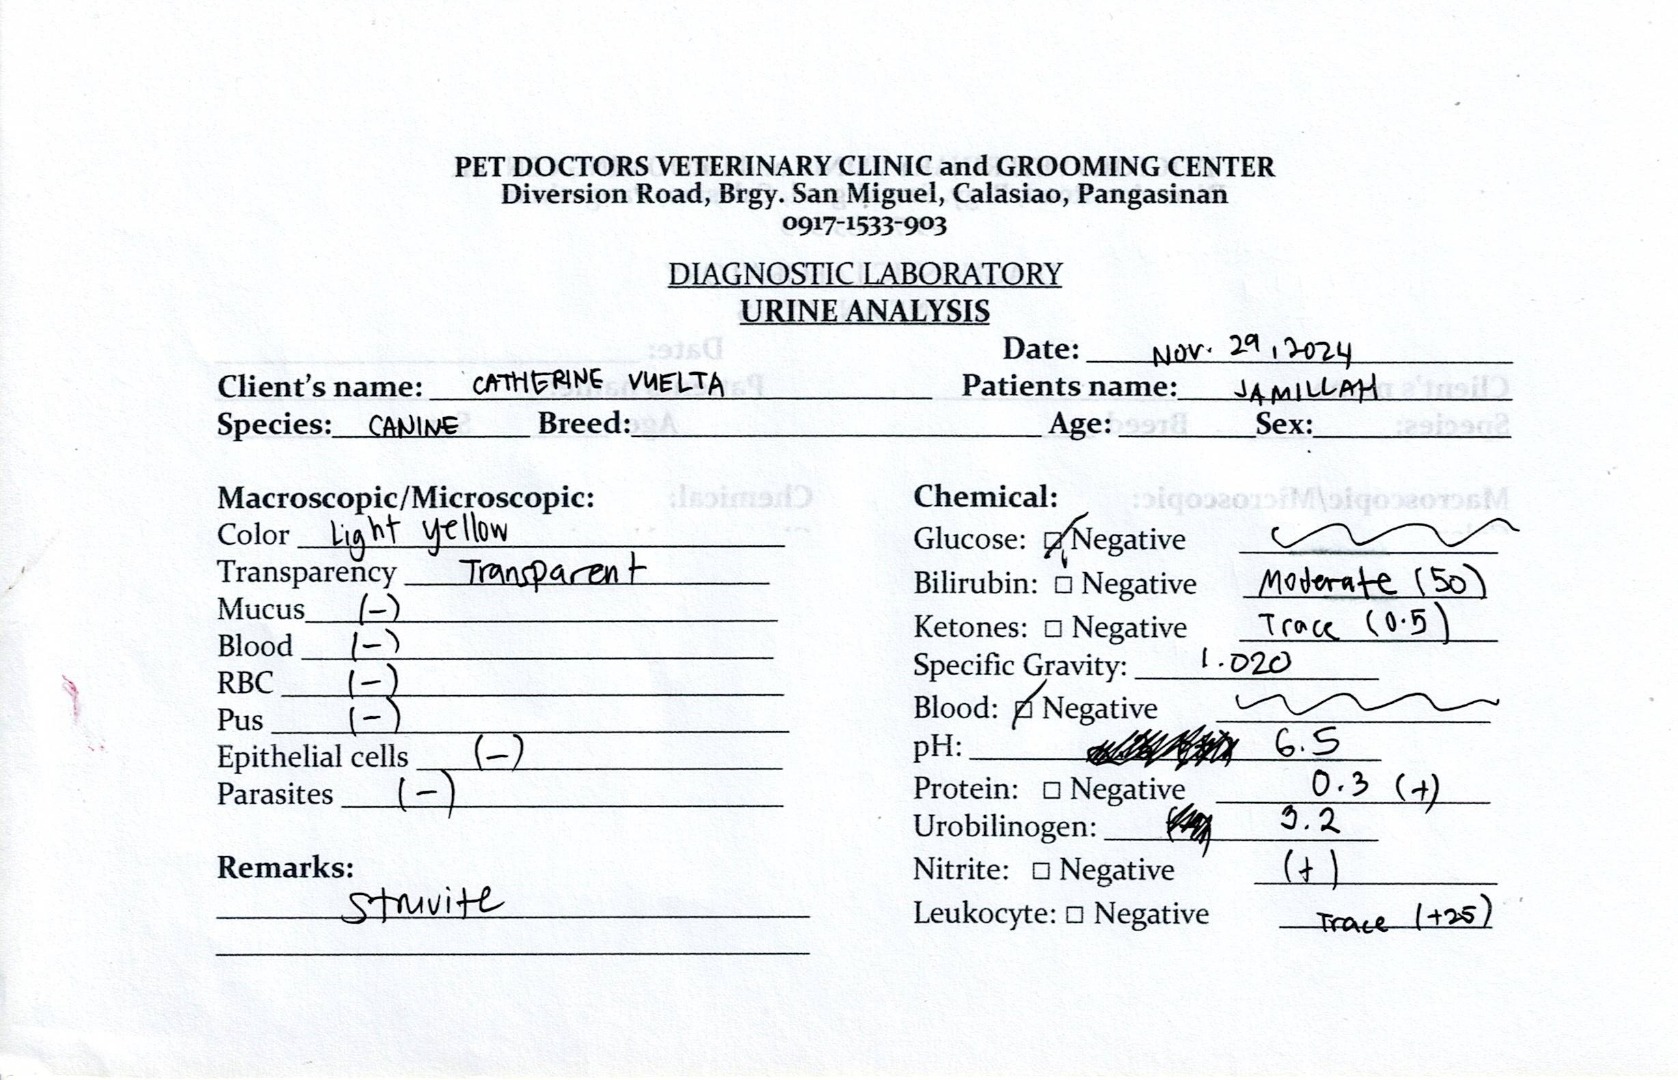 PET DOCTORS VETERINARY CLINIC and GROOMING CENTER
Diversion Road, Brgy. San Miguel, Calasiao, Pangasinan
0917-1533-903
DIAGNOSTIC LABORATORY
URINE ANALYSIS
Date: Nov. 29, 2024
Client's name: CATHERINE VUELTA Patients name: JAMILLAH
Species: CANINE Breed: Age: Sex:
Macroscopic/Microscopic:
Color Light yellow
Transparency Transparent
Mucus (-)
Blood (-)
RBC (-)
Pus (-)
Epithelial cells (-)
Parasites (-)
Remarks:
Struvite
Chemical:
Glucose: ☑ Negative
Bilirubin: □ Negative Moderate (50)
Ketones: □ Negative Trace (0.5)
Specific Gravity: 1.020
Blood: ☑ Negative
pH: 6.5
Protein: □ Negative 0.3 (+)
Urobilinogen: 3.2
Nitrite: □ Negative (+)
Leukocyte: □ Negative Trace (+25)